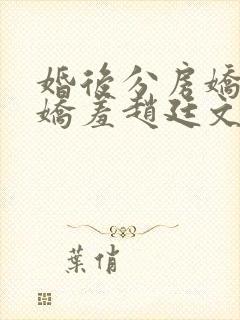 婚後分房嬌
嬌羞趙廷文
葉俏